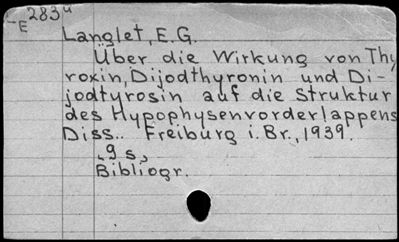 -E 283u
Langlet, E.G.
Über die Wirkung von Thy
roxin, Dijodthyronin und Di-
jodtyrosin auf die Struktur
des Hypophysenvorderlappens
Diss.. Freiburg i. Br., 1939.
9 s,
Bibliogr.